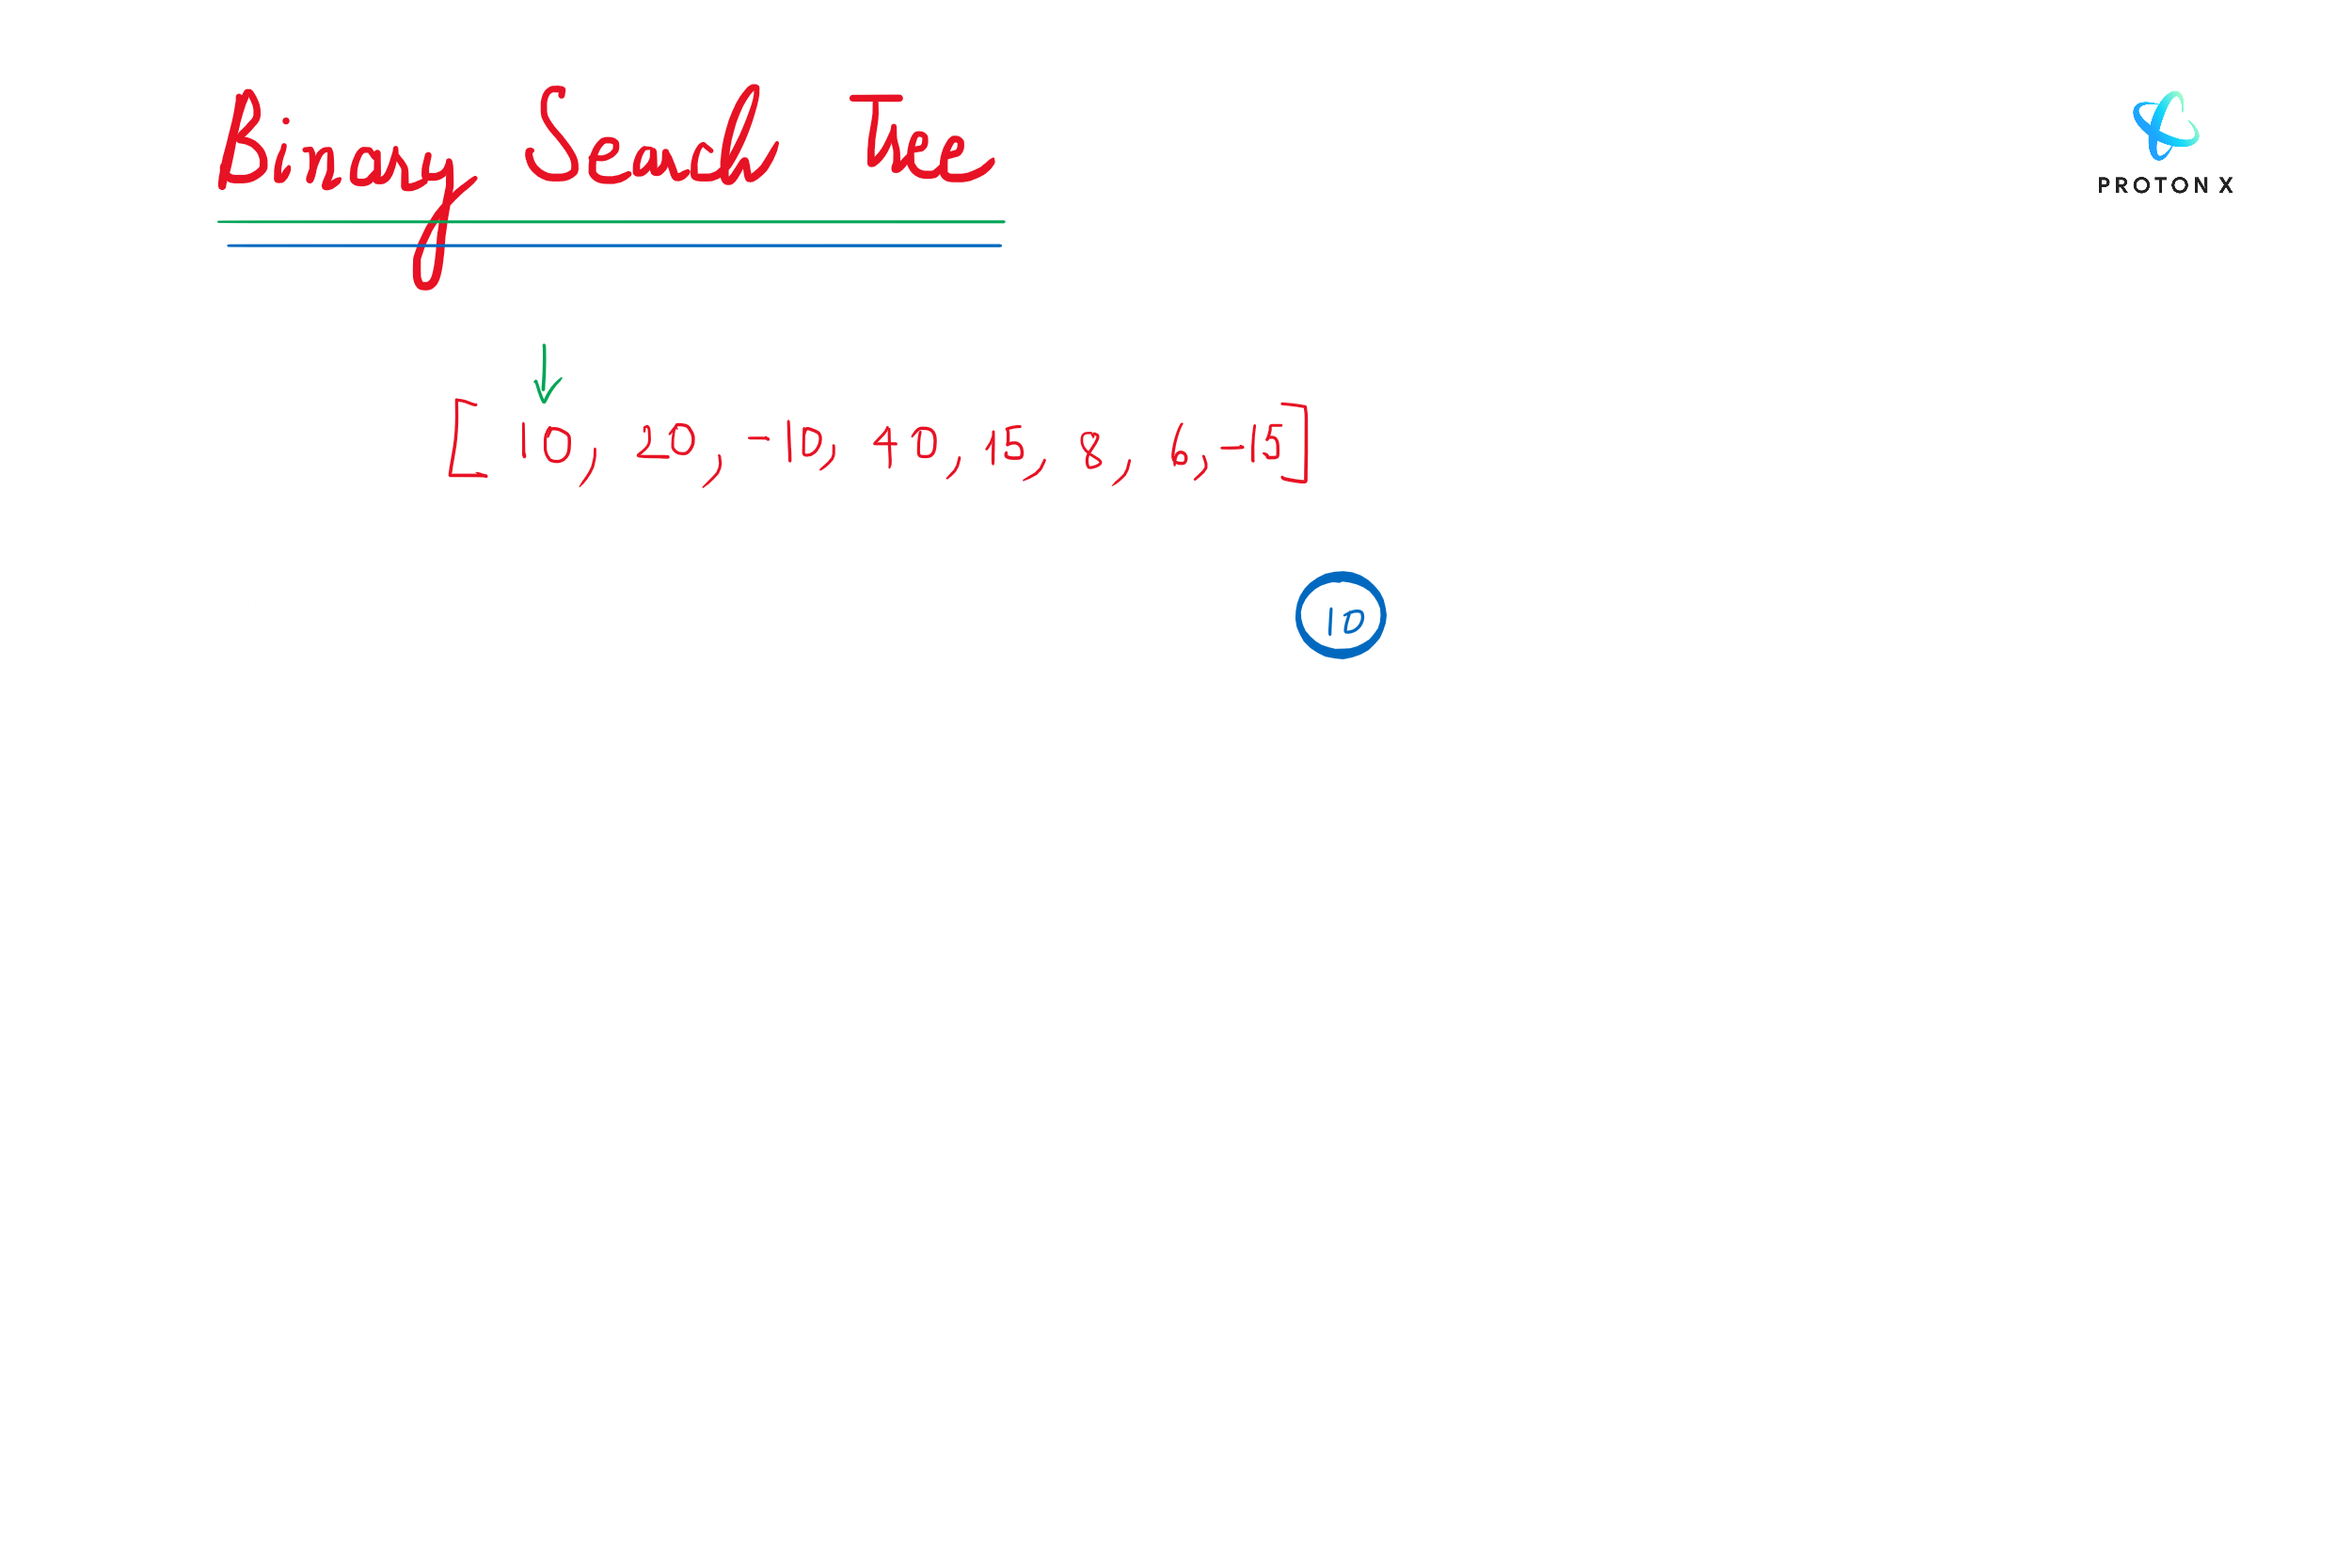 Binary Search Tree
PROTON X
[ 10, 20, -10, 40, 15, 8, 6, -15]
10